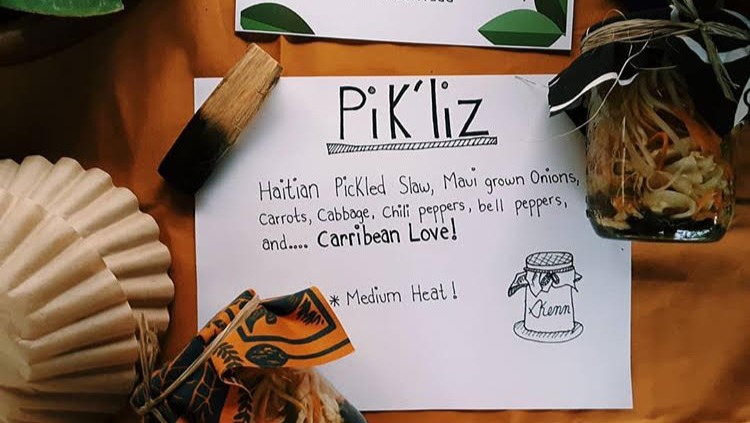 Pik'liz
Haitian Pickled Slaw, Maui grown Onions,
Carrots, Cabbage, Chili peppers, bell peppers,
and.... Carribean Love!
* Medium Heat!